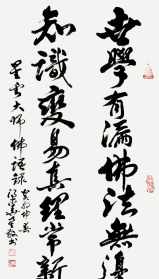 世學有漏佛法無邊
知識變易真理常新
星雲大師佛語錄